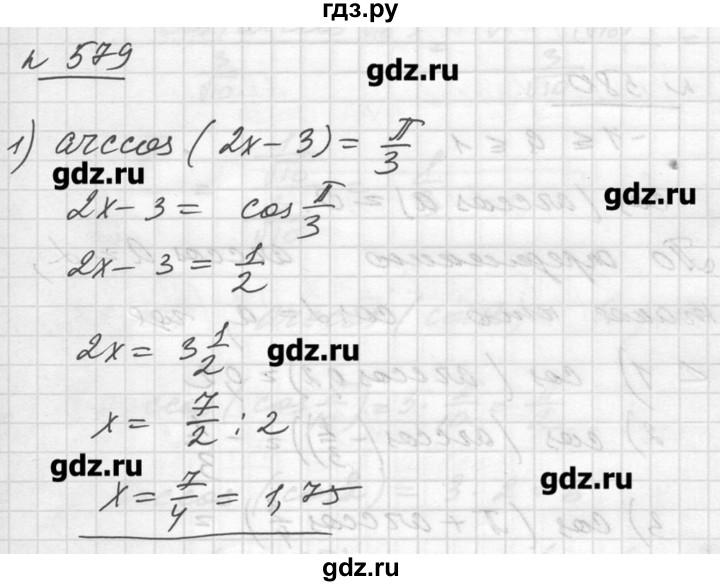 гдз.ру
n 579
gdz.ru
1) arccos (2x - 3) = π/3
gdz.ru
gdz.ru
2x - 3 = cos π/3
2x - 3 = 1/2
2x = 3 1/2
gdz.ru
x = 7/2 : 2
gdz.ru
gdz.ru
x = 7/4 = 1,75
gdz.ru